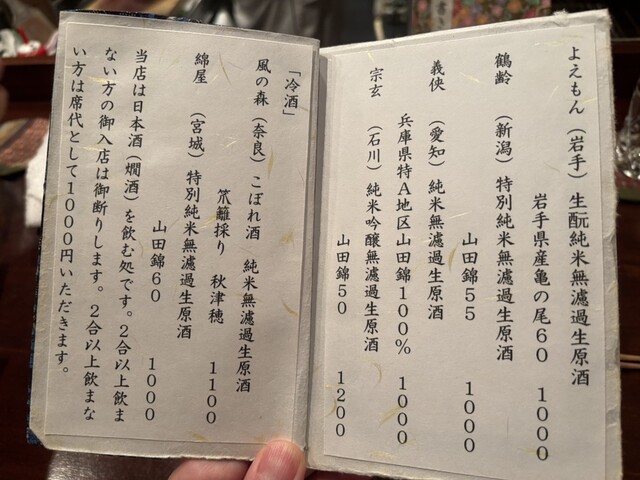 よえもん（岩手）生酛純米無濾過生原酒
岩手県産亀の尾60　1000
鶴齢（新潟）特別純米無濾過生原酒
山田錦55　1000
義侠（愛知）純米無濾過生原酒
兵庫県特A地区山田錦100%　1000
宗玄（石川）純米吟醸無濾過生原酒
山田錦50　1200
「冷酒」
風の森（奈良）こぼれ酒　純米無濾過生原酒
笊籬採り　秋津穂　1100
綿屋（宮城）特別純米無濾過生原酒
山田錦60　1000
当店は日本酒（燗酒）を飲む処です。2合以上飲ま
ない方の御入店は御断りします。2合以上飲まな
い方は席代として1000円いただきます。